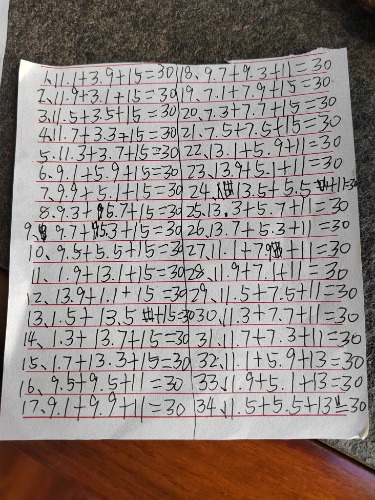 1、11.1+3.9+15=30
2、11.9+3.1+15=30
3、11.5+3.5+15=30
4、11.7+3.3+15=30
5、11.3+3.7+15=30
6、9.1+5.9+15=30
7、9.9+5.1+15=30
8、9.3+5.7+15=30
9、9.7+5.3+15=30
10、9.5+5.5+15=30
11、1.9+13.1+15=30
12、13.9+1.1+15=30
13、1.5+13.5+15=30
14、1.3+13.7+15=30
15、1.7+13.3+15=30
16、9.5+9.5+11=30
17、9.1+9.9+11=30
18、9.7+9.3+11=30
19、7.1+7.9+15=30
20、7.3+7.7+15=30
21、7.5+7.5+15=30
22、13.1+5.9+11=30
23、13.9+5.1+11=30
24、13.5+5.5+11=30
25、13.3+5.7+11=30
26、13.7+5.3+11=30
27、11.1+7.9+11=30
28、11.9+7.1+11=30
29、11.5+7.5+11=30
30、11.3+7.7+11=30
31、11.7+7.3+11=30
32、11.1+5.9+13=30
33、11.9+5.1+13=30
34、11.5+5.5+13=30